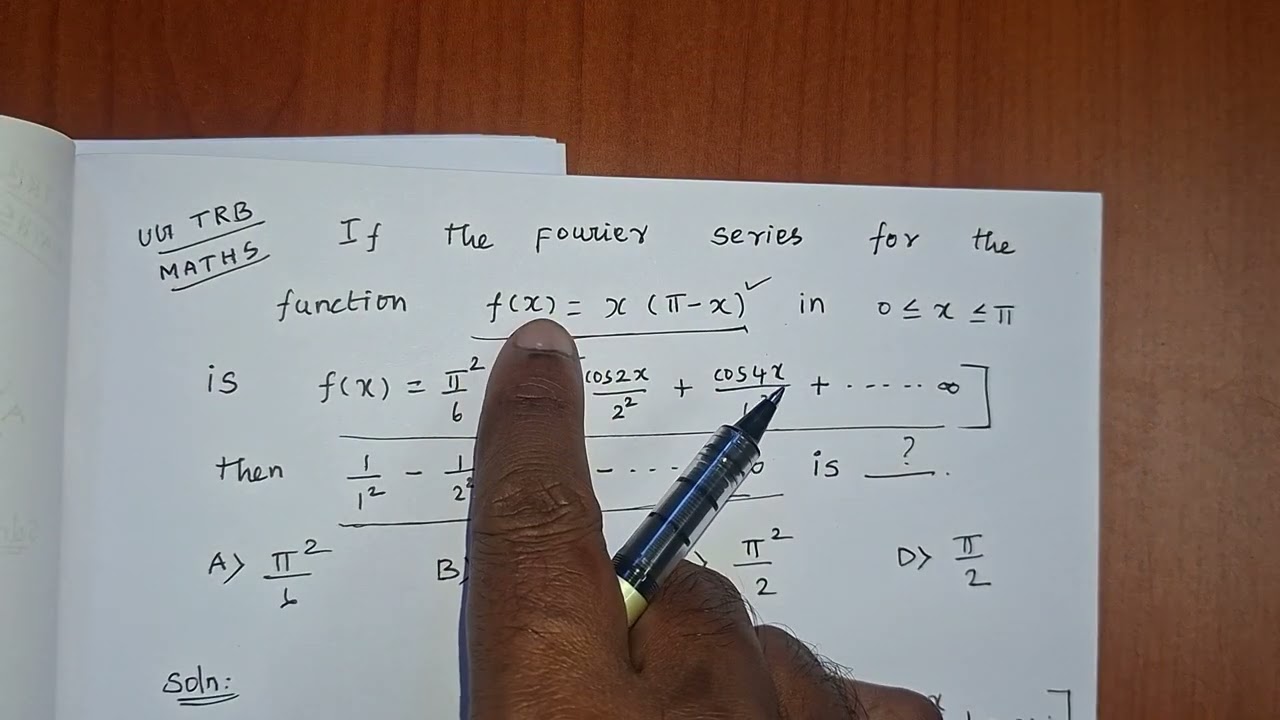 UG TRB
MATHS
If the Fourier series for the
function f(x) = x (π-x) ✓ in 0 ≤ x ≤ π
is f(x) = π²/6 cos2x/2² + cos4x/ + ..... ∞ ]
then 1/1² - 1/2² - ... is ? .
A> π²/6 B> π²/2 D> π/2
Soln: